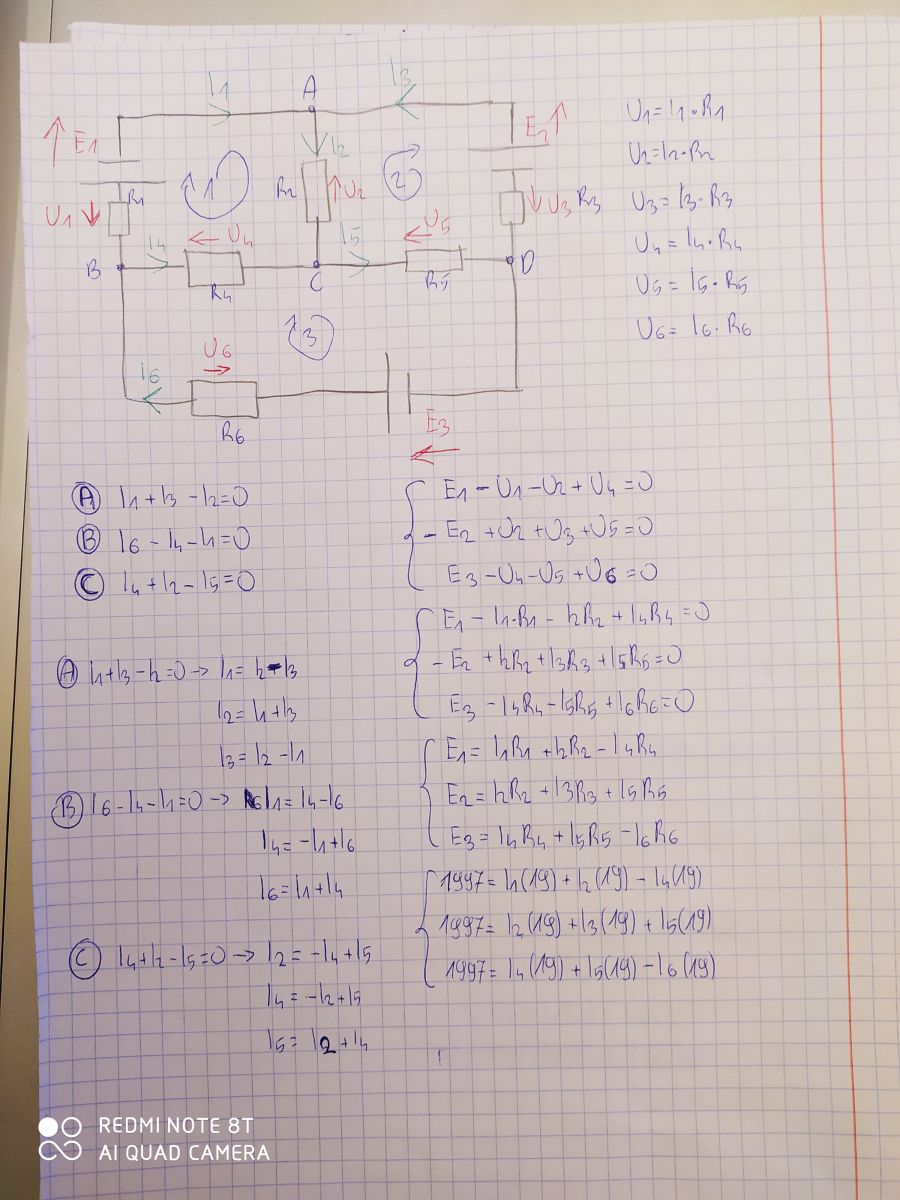 I1 A I3
E1 E2
I2
U1 = I1·R1
U2 = I2·R2
U3 = I3·R3
U4 = I4·R4
U5 = I5·R5
U6 = I6·R6
R1 1 R2 U2 2
U1 U3 R3
I4 U4 I5 U5
B R4 C R5 D
3
U6
I6
R6
E3
A I1 + I3 - I2 = 0
B I6 - I4 - I1 = 0
C I4 + I2 - I5 = 0
E1 - U1 - U2 + U4 = 0
- E2 + U2 + U3 + U5 = 0
E3 - U4 - U5 + U6 = 0
E1 - I1·R1 - I2R2 + I4R4 = 0
- E2 + I2R2 + I3R3 + I5R5 = 0
E3 - I4R4 - I5R5 + I6R6 = 0
A I1 + I3 - I2 = 0 → I1 = I2 - I3
I2 = I1 + I3
I3 = I2 - I1
E1 = I1R1 + I2R2 - I4R4
E2 = I2R2 + I3R3 + I5R5
E3 = I4R4 + I5R5 - I6R6
B I6 - I4 - I1 = 0 → I1 = I4 - I6
I4 = -I1 + I6
I6 = I1 + I4
1997 = I1(19) + I2(19) - I4(19)
1997 = I2(19) + I3(19) + I5(19)
1997 = I4(19) + I5(19) - I6(19)
C I4 + I2 - I5 = 0 → I2 = -I4 + I5
I4 = -I2 + I5
I5 = I2 + I4
REDMI NOTE 8T
AI QUAD CAMERA